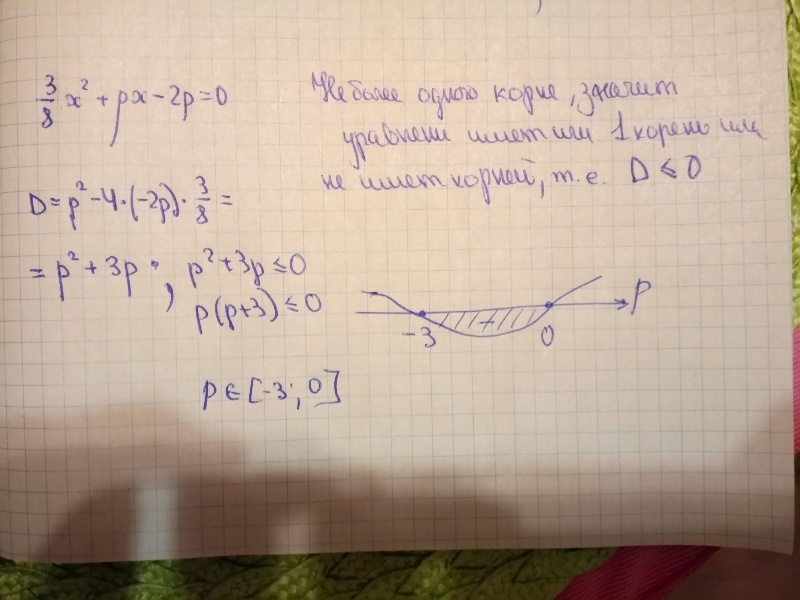 3/8 x² + px - 2p = 0
Не более одного корня, значит
уравнени имет или 1 корень или
не имет корней, т.е. D ≤ 0
D = p² - 4·(-2p)·3/8 =
= p² + 3p ; p² + 3p ≤ 0
p(p+3) ≤ 0
-3 + 0 p
p ∈ [-3; 0]